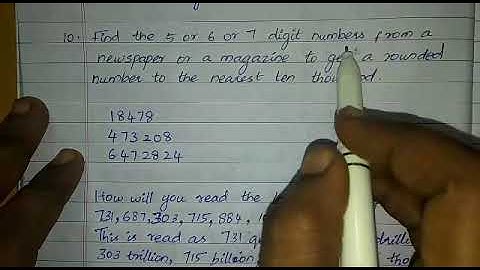 10. Find the 5 or 6 or 7 digit numbers from a
newspaper or a magazine to get a rounded
number to the nearest ten thousand.
18478
473208
6472824
How will you read the
731, 687, 303, 715, 884, 1
This is read as 731
303 trillion, 715 billion,